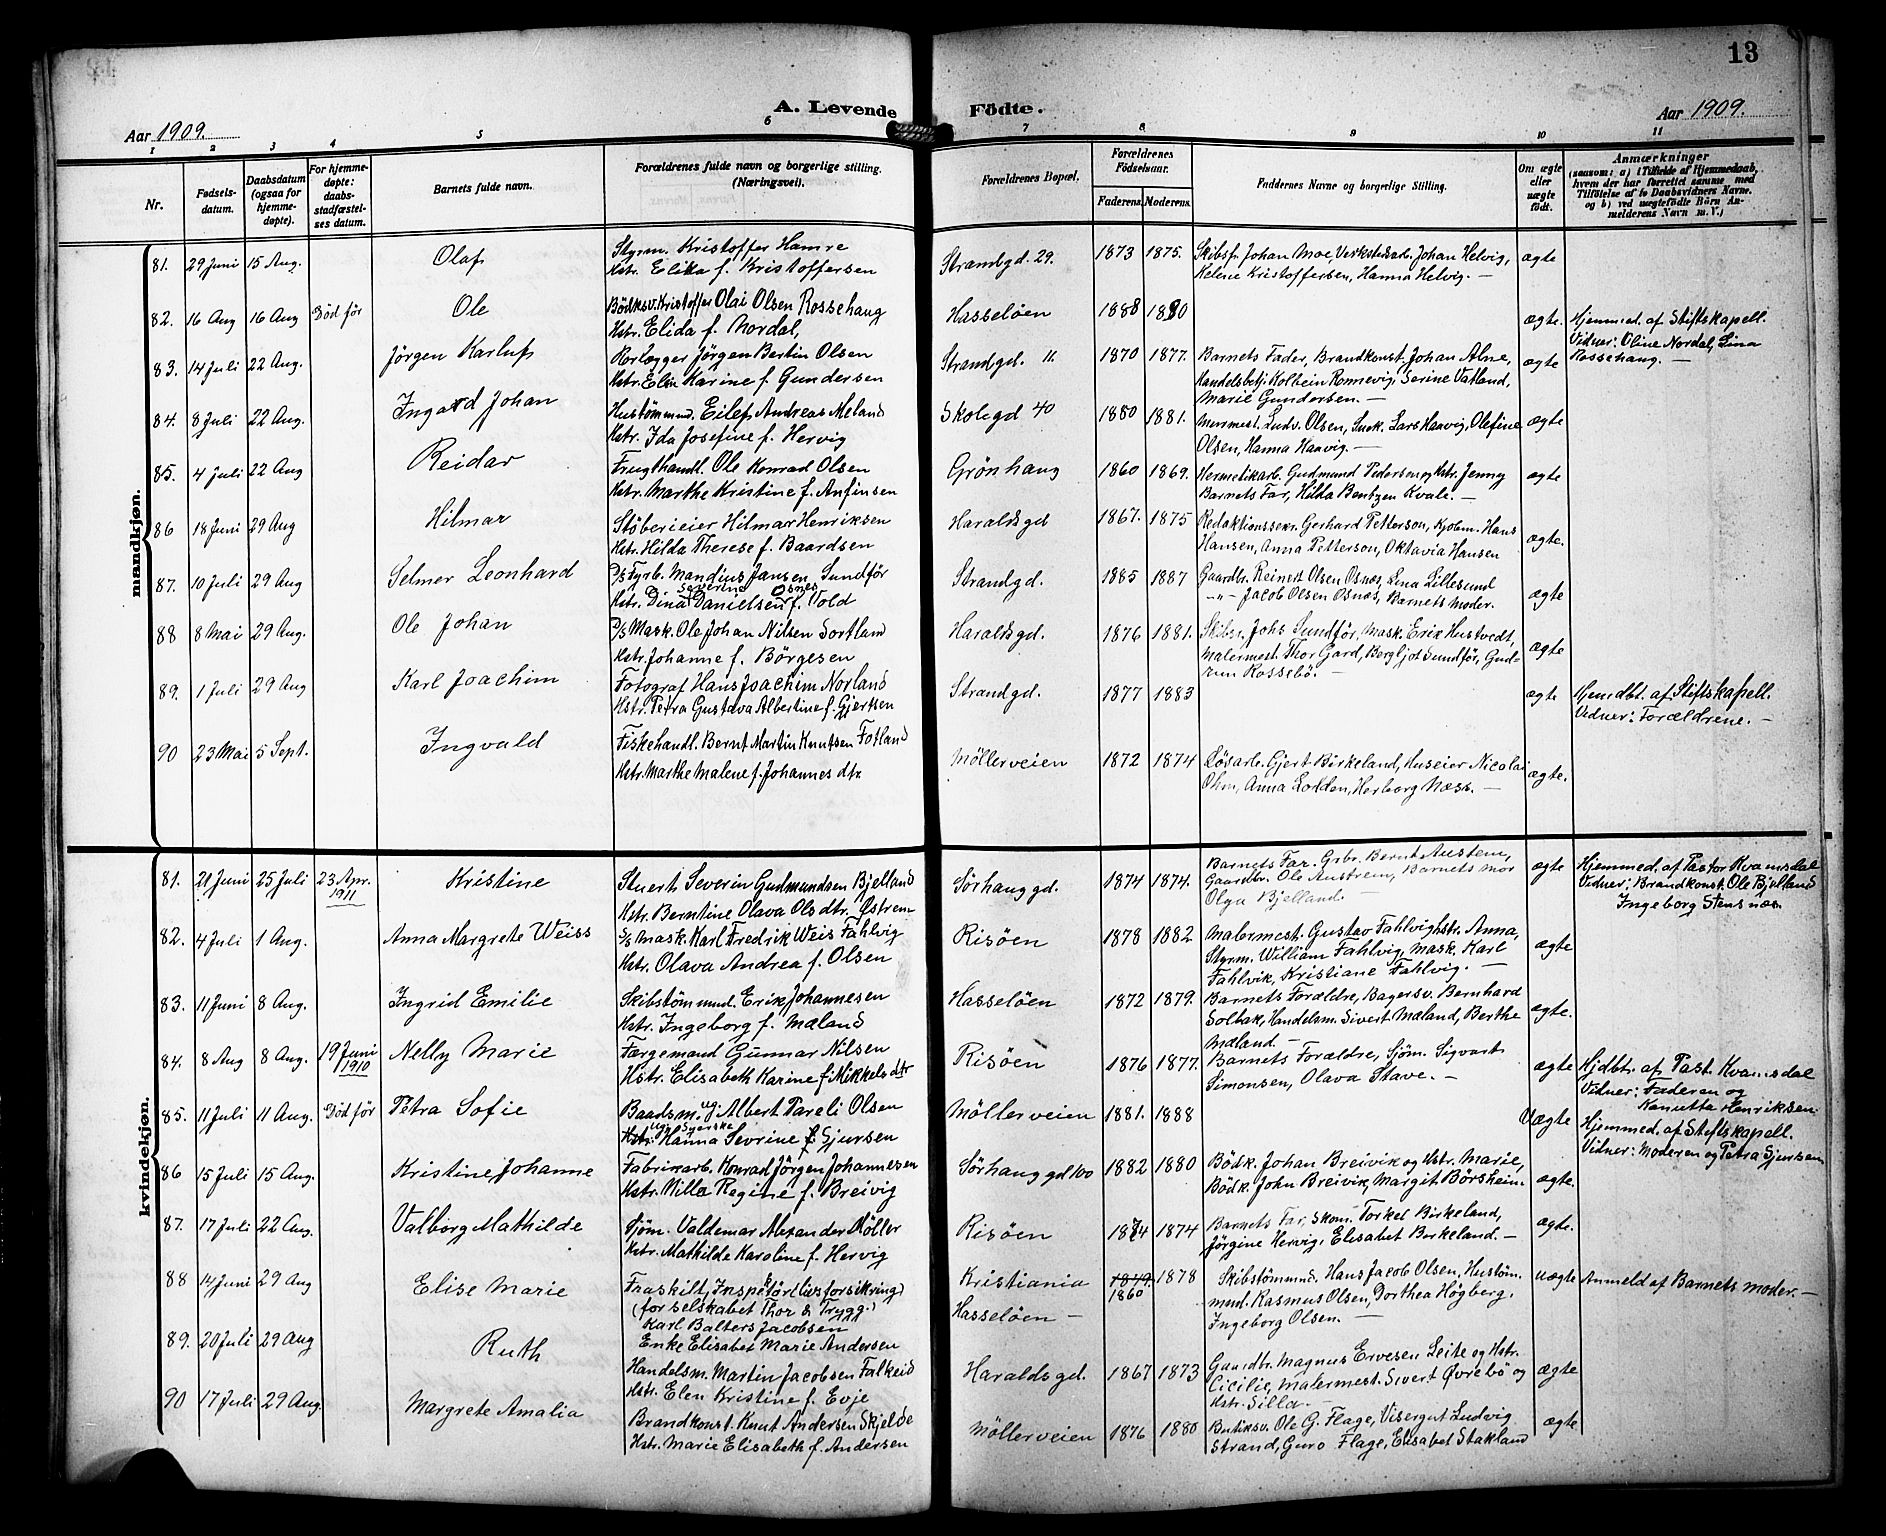 13
A. Levende Födte.
Aar 1909.
Aar 1909.
1 2 3 4 5 6 7 8 9 10 11
Nr.
Fødsels-
datum.
Daabsdatum
(ogsaa for
hjemme-
døpte).
For hjemme-
døpte:
daabs-
stadfæstel-
ses datum.
Barnets fulde navn.
Forældrenes fulde navn og borgerlige stilling.
(Næringsvei).
Forældrenes Bopæl.
Forældrenes
Fødselsaar.
Faderens. Moderens.
Faddernes Navne og borgerlige Stilling.
Om ægte
eller
uægte
født.
Anmærkninger
(saasom: a) i Tilfælde af Hjemmedaab,
hvem der har forrettet samme med
Tilföielse af to Daabsvidners Navne.
og b) ved uægtefödte Börn An-
melderens Navn m. V.)
mandkjøn.
81. 29 Juni 15 Aug. Olaf
Styrm. Kristoffer Hamre
Hstr. Elika f. Kristoffersen
Strandgd. 29. 1873 1875.
Skibsf. Johan Moe, Verkstedarb. Johan Helvig,
Helene Kristoffersen, Hanna Helvig. —
ægte
82. 16 Aug 16 Aug Död för Ole
Bödksv. Kristoffer Olai Olsen Rossehaug
Hstr. Elida f. Nordal,
Hasselöen 1888 1890 ægte.
Hjemmed. af Stiftskapell.
Vidner: Oline Nordal, Lina
Rossehaug. —
83. 14 Juli 22 Aug. Jörgen Karluf
Rorlægger Jörgen Bertin Olsen
Hstr. Elen Karine f. Gundersen
Strandgd. 11 1870 1877.
Barnets Fader, Brandkonst. Johan Alne,
Handelsbetj. Kolbein Rønnevig, Serine Vatland,
Marie Gundersen. —
ægte
84. 8 Juli 22 Aug. Ingard Johan
Hustömmd. Eilef Andreas Meland
Hstr. Ida Josefine f. Hervig
Skolegd 40 1880 1881.
Murmest. Ludv. Olsen, Snek. Lars Haavig, Olefine
Olsen, Hanna Haavig. —
ægte
85. 4 Juli 22 Aug Reidar
Frugthandl. Ole Konrad Olsen
Hstr. Marthe Kristine f. Anfinsen
Grönhaug 1860 1869.
Hermetikarb. Gudmund Pedersen og Hstr. Jenny
Barnets Far, Hilda Bentzen Kvale. —
ægte
86 18 Juni 29 Aug Hilmar
Stöberieier Hilmar Henriksen
Hstr. Hilda Therese f. Baardsen
Haraldsgd 1867. 1875
Redaktionssekr. Gerhard Petterson, Kjøbm. Hans
Hansen, Anna Petterson, Oktavia Hansen
ægte.
87. 10 Juli 29 Aug Selmer Leonhard
D/S Fyrb. Mandius Jansen Sundför
Severine Osnes
Hstr. Dina Danielsen f. Vold
Strandgd. 1885 1887
Gaardbr. Reinert Olsen Osnæs, Lina Lillesund
—"— Jacob Olsen Osnæs, Barnets Moder.
ægte
88 8 Mai 29 Aug. Ole Johan
D/S Mask. Ole Johan Nilsen Sortland
Hstr. Johanne f. Börgesen
Haraldsgd. 1876 1881.
Skibsr. Johs Sundför, Mask. Erik Hustvedt,
Malermest. Thor Gard, Bergljot Sundför, Gud-
run Rossebö. —
ægte
89. 1 Juli 29 Aug Karl Joachim
Fotograf Hans Joachim Norland
Hstr. Petra Gustava Albertine f. Gjertsen
Strandgd. 1877 1883 ægte
Hjemdbt. af Stiftskapell.
Vidner: Forældrene. —
90 23 Mai 5 Sept. Ingvald
Fiskehandl. Bernt Martin Knutsen Fotland
Hstr. Marthe Malene f. Johannes dtr
Möllerveien 1872 1874
Lösarb. Gjert Birkeland, Huseier Nicolai
Ohm, Anna Lolden, Herborg Næss. —
ægte.
kvindekjøn.
81. 21 Juni 25 Juli 23 Apr. 1911 Kristine
Stuert Severin Gudmundsen Bjelland
Hstr. Berntine Olava Ols dtr. Östrem
Sörhauggd. 1874 1874.
Barnets Far. Grbr. Bernt Austrem,
Gaardbr. Ole Austrem, Barnets mor
Olga Bjelland.
ægte
Hjemmed. af Pastor Kvamsdal
Vidner: Brandkonst. Ole Bjelland
Ingeborg Stensnæs.
82. 4 Juli 1 Aug. Anna Margrete Weiss
S/S Mask. Karl Fredrik Weis Fahlvig
Hstr. Olava Andrea f. Olsen
Risöen 1878 1882
Malermest. Gustav Fahlvig Hstr. Anna,
Styrm. William Fahlvig, Mask. Karl
Fahlvik, Kristiane Fahlvig. —
ægte
83. 11 Juni 8 Aug. Ingrid Emilie
Skibstömmd. Erik Johannesen
Hstr. Ingeborg f. Mæland
Hasselöen 1872 1879.
Barnets Forældre, Bagersv. Bernhard
Solbak, Handelsm. Sivert Mæland, Berthe
Mæland. —
ægte.
84. 8 Aug 8 Aug. 19 Juni 1910 Nelly Marie
Færgemand Gunnar Nilsen
Hstr. Elisabeth Karine f. Mikkels dtr
Risöen 1876 1877.
Barnets Forældre, Sjöm. Sigvart
Simonsen, Olava Stave. —
ægte
Hjdbt. af Past. Kvamsdal
Vidner: Faderen og
Hanutta Henriksen
85. 11 Juli 11 Aug. Död för Petra Sofie
Baadsm. ug. Albert Pareli Olsen
ug. Syerske
Hstr. Hanna Sevrine f. Gjursen
Möllerveien 1881. 1888 Uægte
Hjemmed. af Stiftskapell.
Vidner: Moderen og Petra Gjursen
86 15 Juli 15 Aug. Kristine Johanne
Fabrikarb. Konrad Jörgen Johannesen
Hstr. Milla Regine f. Breivig
Sörhauggd 100 1882 1880
Bödk. Johan Breivik og Hstr. Marie,
Bödk. John Breivik, Margit Börsheim.
ægte.
87. 17 Juli 22 Aug. Valborg Mathilde
Sjöm. Valdemar Alexander Möller
Hstr. Mathilde Karoline f. Hervig
Risöen 1874 1874
Barnets Far, Skom. Torkel Birkeland,
Jörgine Hervig, Elisabet Birkeland. —
ægte.
88 14 Juni 29 Aug Elise Marie
Fraskilt, Inspektör (livsforsikring)
(for selskabet Thor & Trygg.)
Karl Balters Jacobsen
Enke Elisabet Marie Andersen
Kristiania
Hasselöen —
1849. 1860 1878
Skibstömmd. Hans Jacob Olsen, Hustöm.
md. Rasmus Olsen, Dorthea Högberg,
Ingeborg Olsen. —
uægte Anmeld af Barnets moder. —
89. 20 Juli 29 Aug Ruth
Handelsm. Martin Jacobsen Falkeid
Hstr. Elen Kristine f. Evje
Haraldsgd. 1867 1873
Gaardbr. Magnus Ervesen Leite og Hstr.
Cicilie, Malermest. Sivert Øvrebö og
Hstr. Silla. —
ægte
90 17 Juli 29 Aug. Margrete Amalia
Brandkonst. Knut Andersen Skjelde
Hstr. Marie Elisabeth f. Andersen
Möllerveien 1876 1880
Butiksv. Ole G. Flage, Visergut Ludvig
Strand, Guro Flage, Elisabet Stakland
ægte